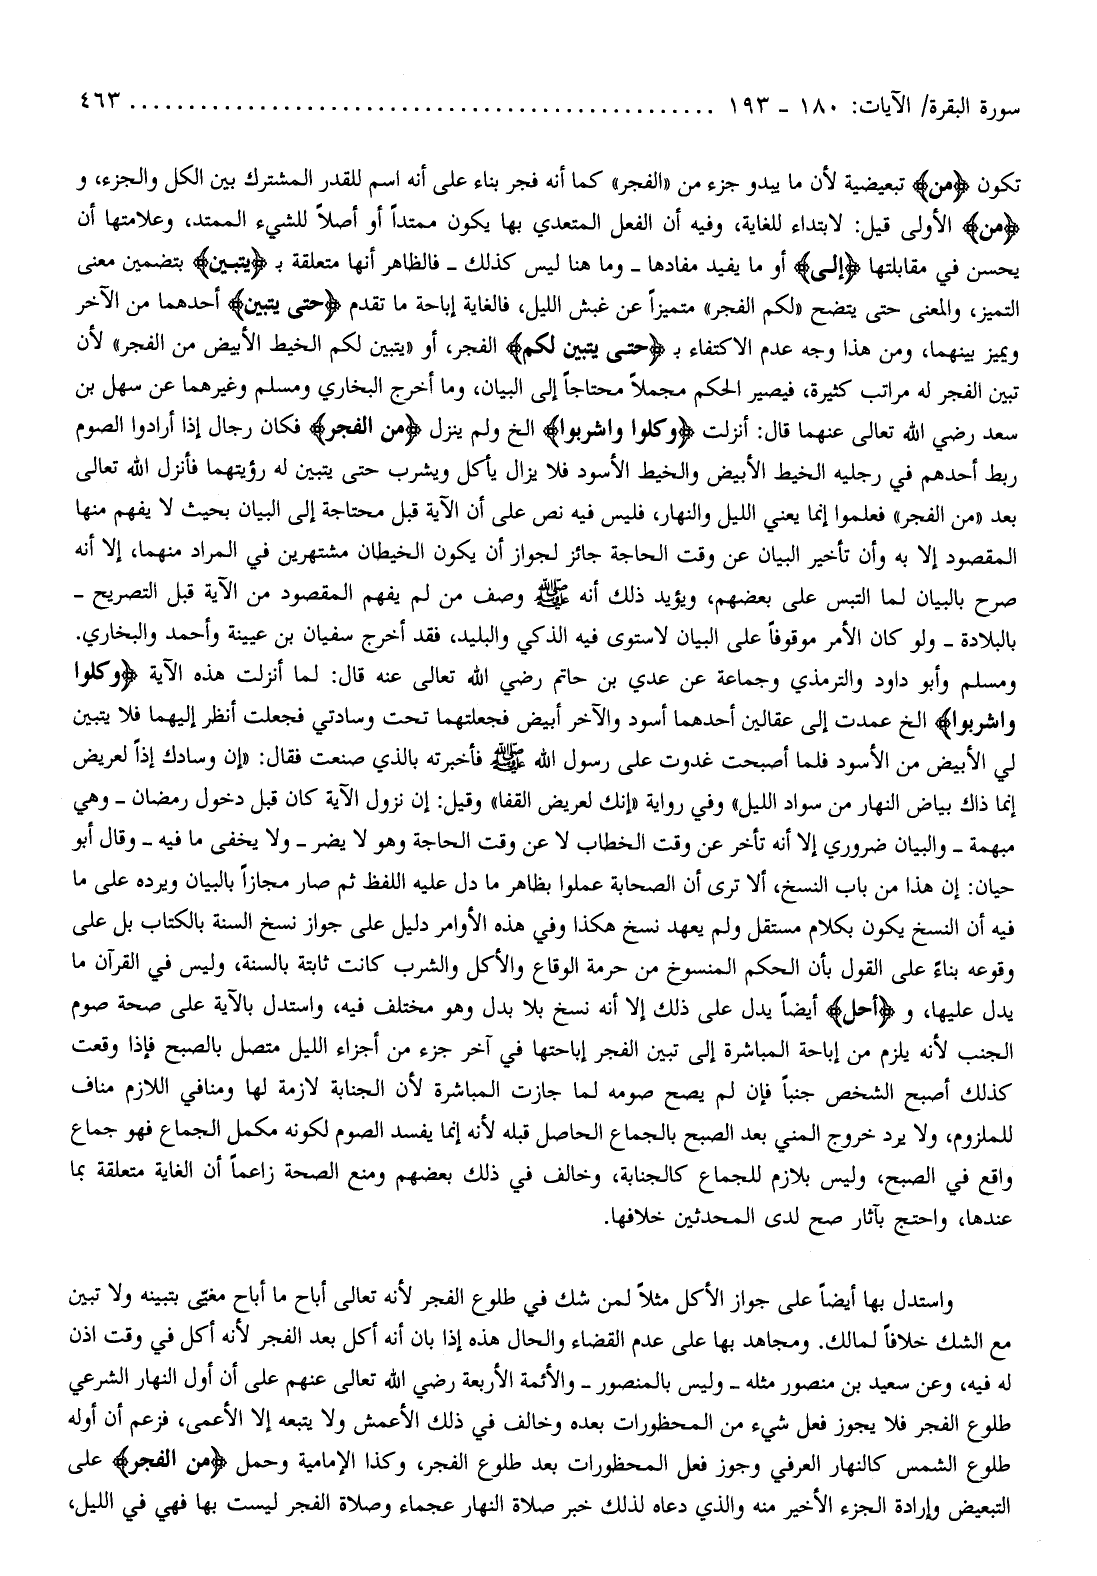 سورة البقرة/ الآيات: ١٨٠ - ١٩٣ .................................................. ٤٦٣
تكون ﴿من﴾ تبعيضية لأن ما يبدو جزء من «الفجر» كما أنه فجر بناء على أنه اسم للقدر المشترك بين الكل والجزء، و
﴿من﴾ الأولى قيل: لابتداء للغاية، وفيه أن الفعل المتعدي بها يكون ممتداً أو أصلاً للشيء الممتد، وعلامتها أن
يحسن في مقابلتها ﴿إلى﴾ أو ما يفيد مفادها ـ وما هنا ليس كذلك ـ فالظاهر أنها متعلقة بـ ﴿يتبين﴾ بتضمين معنى
التميز، والمعنى حتى يتضح «لكم الفجر» متميزاً عن غبش الليل، فالغاية إباحة ما تقدم ﴿حتى يتبين﴾ أحدهما من الآخر
ويميز بينهما، ومن هذا وجه عدم الاكتفاء بـ ﴿حتى يتبين لكم﴾ الفجر، أو «يتبين لكم الخيط الأبيض من الفجر» لأن
تبين الفجر له مراتب كثيرة، فيصير الحكم مجملاً محتاجاً إلى البيان، وما أخرج البخاري ومسلم وغيرهما عن سهل بن
سعد رضي الله تعالى عنهما قال: أنزلت ﴿وكلوا واشربوا﴾ الخ ولم ينزل ﴿من الفجر﴾ فكان رجال إذا أرادوا الصوم
ربط أحدهم في رجليه الخيط الأبيض والخيط الأسود فلا يزال يأكل ويشرب حتى يتبين له رؤيتهما فأنزل الله تعالى
بعد «من الفجر» فعلموا إنما يعني الليل والنهار، فليس فيه نص على أن الآية قبل محتاجة إلى البيان بحيث لا يفهم منها
المقصود إلا به وأن تأخير البيان عن وقت الحاجة جائز لجواز أن يكون الخيطان مشتهرين في المراد منهما، إلا أنه
صرح بالبيان لما التبس على بعضهم، ويؤيد ذلك أنه ﷺ وصف من لم يفهم المقصود من الآية قبل التصريح ـ
بالبلادة ـ ولو كان الأمر موقوفاً على البيان لاستوى فيه الذكي والبليد، فقد أخرج سفيان بن عيينة وأحمد والبخاري.
ومسلم وأبو داود والترمذي وجماعة عن عدي بن حاتم رضي الله تعالى عنه قال: لما أنزلت هذه الآية ﴿وكلوا
واشربوا﴾ الخ عمدت إلى عقالين أحدهما أسود والآخر أبيض فجعلتهما تحت وسادتي فجعلت أنظر إليهما فلا يتبين
لي الأبيض من الأسود فلما أصبحت غدوت على رسول الله ﷺ فأخبرته بالذي صنعت فقال: «إن وسادك إذاً لعريض
إنما ذاك بياض النهار من سواد الليل» وفي رواية «إنك لعريض القفا» وقيل: إن نزول الآية كان قبل دخول رمضان ـ وهي
مبهمة ـ والبيان ضروري إلا أنه تأخر عن وقت الخطاب لا عن وقت الحاجة وهو لا يضر ـ ولا يخفى ما فيه ـ وقال أبو
حيان: إن هذا من باب النسخ، ألا ترى أن الصحابة عملوا بظاهر ما دل عليه اللفظ ثم صار مجازاً بالبيان ويرده على ما
فيه أن النسخ يكون بكلام مستقل ولم يعهد نسخ هكذا وفي هذه الأوامر دليل على جواز نسخ السنة بالكتاب بل على
وقوعه بناءً على القول بأن الحكم المنسوخ من حرمة الوقاع والأكل والشرب كانت ثابتة بالسنة، وليس في القرآن ما
يدل عليها، و ﴿أحل﴾ أيضاً يدل على ذلك إلا أنه نسخ بلا بدل وهو مختلف فيه، واستدل بالآية على صحة صوم
الجنب لأنه يلزم من إباحة المباشرة إلى تبين الفجر إباحتها في آخر جزء من أجزاء الليل متصل بالصبح فإذا وقعت
كذلك أصبح الشخص جنباً فإن لم يصح صومه لما جازت المباشرة لأن الجنابة لازمة لها ومنافي اللازم مناف
للملزوم، ولا يرد خروج المني بعد الصبح بالجماع الحاصل قبله لأنه إنما يفسد الصوم لكونه مكمل الجماع فهو جماع
واقع في الصبح، وليس بلازم للجماع كالجنابة، وخالف في ذلك بعضهم ومنع الصحة زاعماً أن الغاية متعلقة بما
عندها، واحتج بآثار صح لدى المحدثين خلافها.
واستدل بها أيضاً على جواز الأكل مثلاً لمن شك في طلوع الفجر لأنه تعالى أباح ما أباح مغيّى بتبينه ولا تبين
مع الشك خلافاً لمالك. ومجاهد بها على عدم القضاء والحال هذه إذا بان أنه أكل بعد الفجر لأنه أكل في وقت اذن
له فيه، وعن سعيد بن منصور مثله ـ وليس بالمنصور ـ والأئمة الأربعة رضي الله تعالى عنهم على أن أول النهار الشرعي
طلوع الفجر فلا يجوز فعل شيء من المحظورات بعده وخالف في ذلك الأعمش ولا يتبعه إلا الأعمى، فزعم أن أوله
طلوع الشمس كالنهار العرفي وجوز فعل المحظورات بعد طلوع الفجر، وكذا الإمامية وحمل ﴿من الفجر﴾ على
التبعيض وإرادة الجزء الأخير منه والذي دعاه لذلك خبر صلاة النهار عجماء وصلاة الفجر ليست بها فهي في الليل،